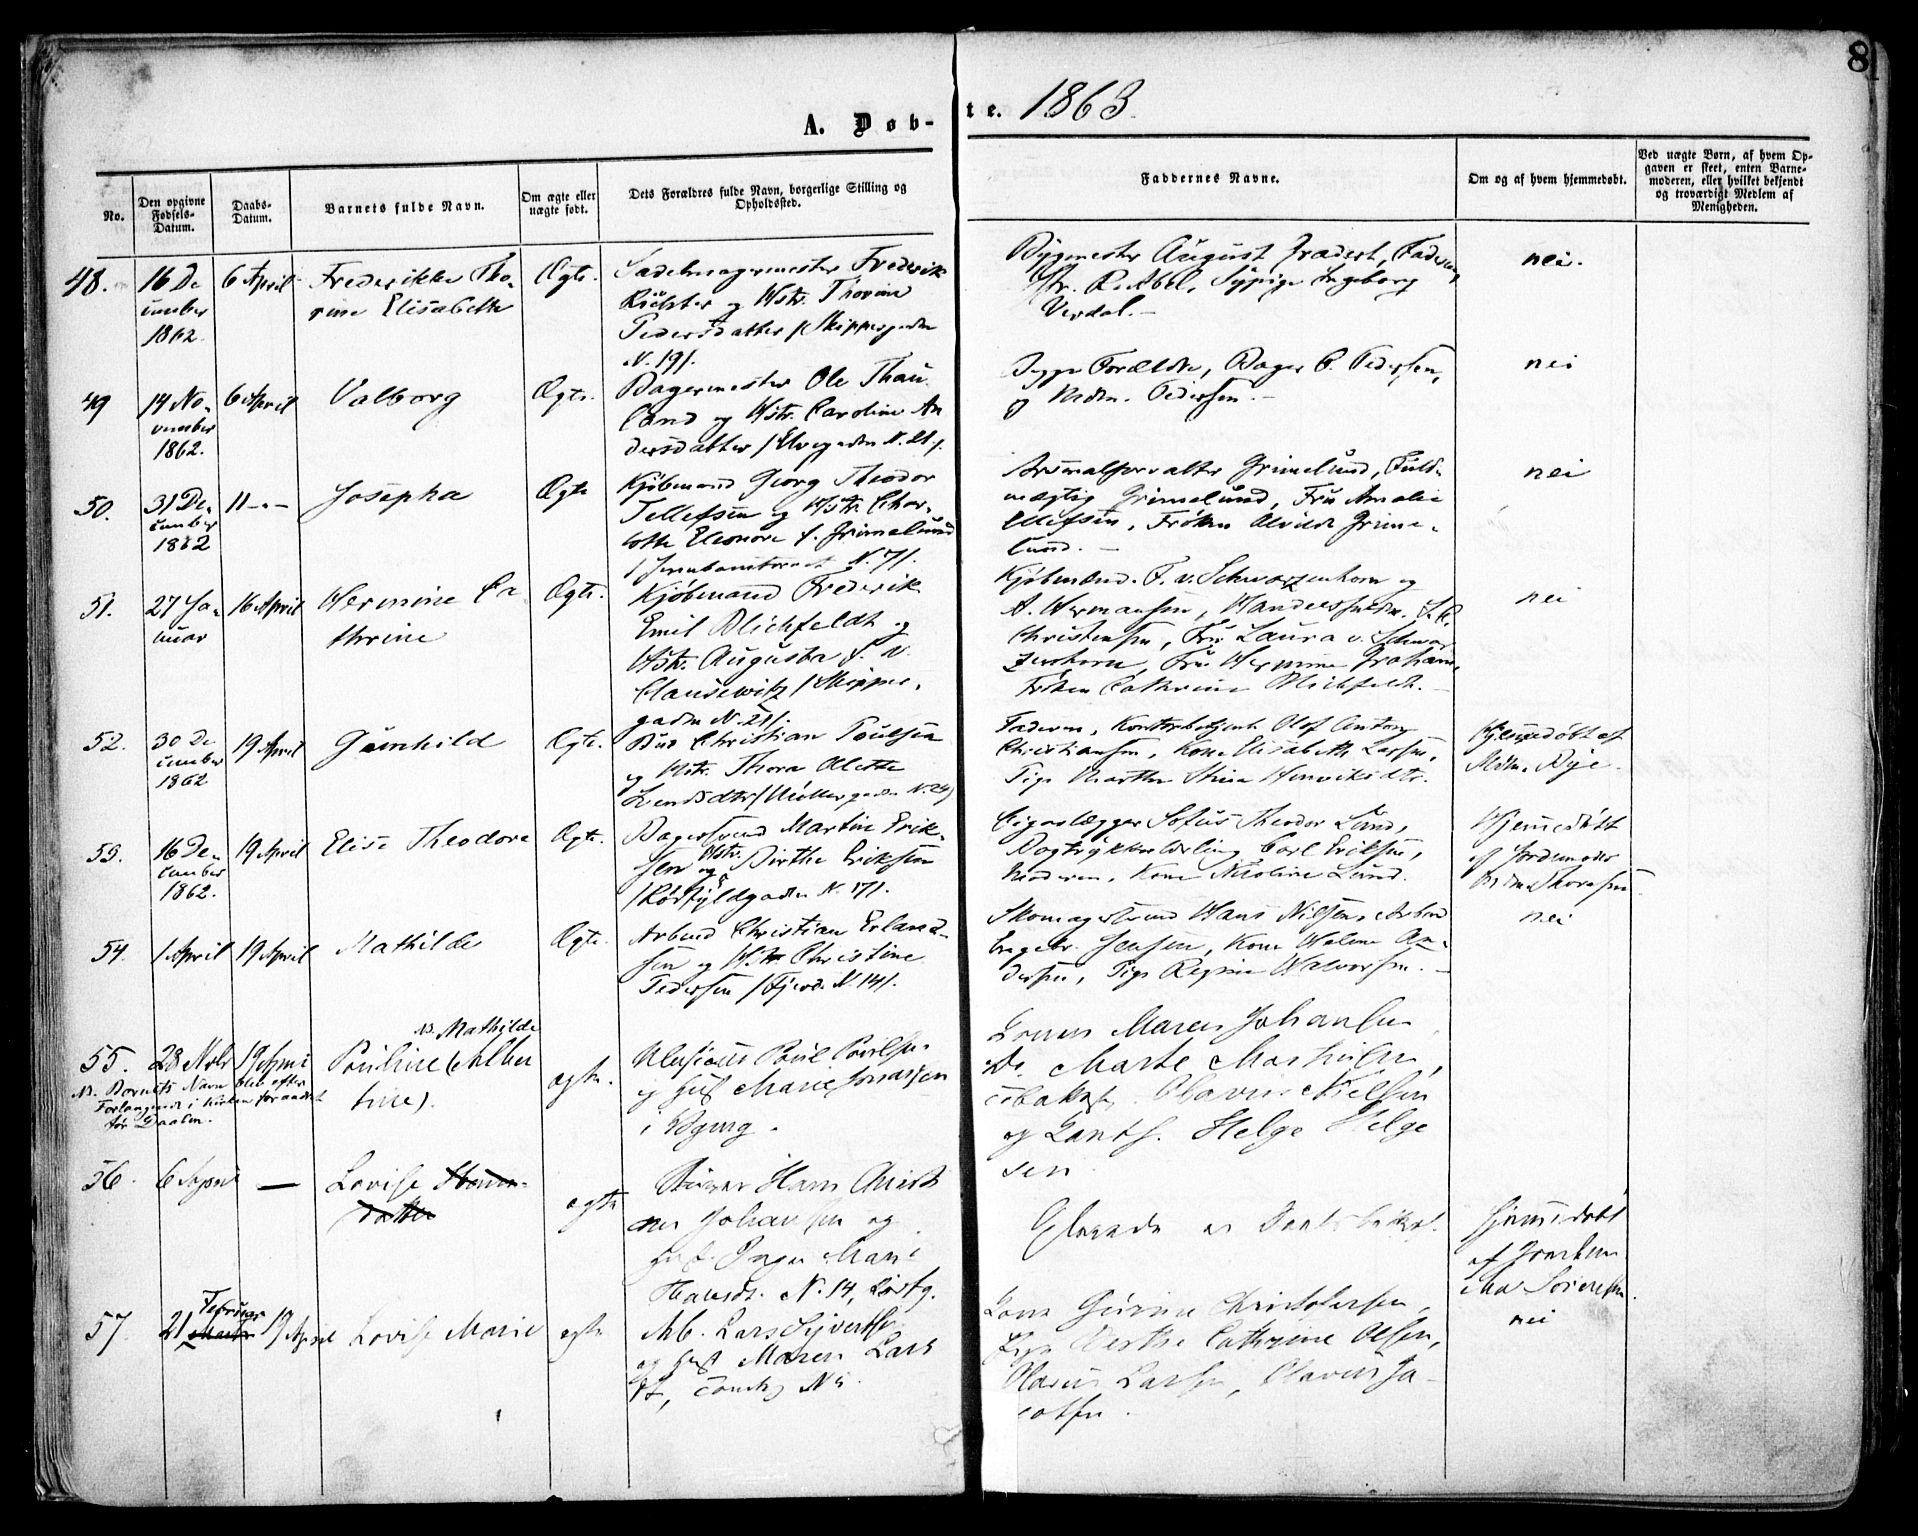 8
A. Døb-
te. 1863.
No.
Den opgivne
Fødsels-
Datum.
Daabs-
Datum.
Barnets fulde Navn.
Om ægte eller
uægte født.
Dets Forældres fulde Navn, borgerlige Stilling og
Opholdssted.
Faddernes Navne.
Om og af hvem hjemmedøbt.
Ved uægte Børn, af hvem Op-
gaven er skeet, enten Barne-
moderen, eller hvilket bekjendt
og troværdigt Medlem af
Menigheden.
48.
16 De
cember
1862.
6 April
Frederikke Tho-
rine Elisabeth
Ægte.
Sadelmagermester Frederik
Richter og Hstr. Thorine
Pedersdatter / Skippergaden
N. 19/.
Bygmester August
R. Abel, Sypige Ingeborg
Verdal.
nei.
49
14 No-
vember
1862.
6 April
Valborg
Ægte.
Bagermester Ole Thau
land og Hstr. Caroline An
dersdatter / Elvegaden N. 21/.
Begge Forældre, Bager P. Pedersen,
og Mdm. Pedersen.
nei
50.
31 De-
cember
1862
11 - -
Josepha
Ægte
Kjøbmand Georg Theodor
Tellefsen og Hstr. Char-
lotte Eleonore f. Grimelund
N. 7/.
Arsenalforvalter Grimelund, Fuld-
mægtig Grimelund, Fru Amalie
Ellefsen, Frøken Alvilde Grime-
lund.
nei
51.
27 Ja-
nuar
16 April
Hermine Ca-
thrine
Ægte.
Kjøbmand Frederik
Emil Blichfeldt og
Hstr. Augusta f. v.
Clausewitz / Skipper-
gaden N. 21/.
Kjøbmænd. F. v. Schwarzenhorn og
A. Hermansen, Handelsfuldm.
Christensen, Fru Laura v. Schwar
zenhorn, Fru Hermine
Frøken Cathrine Blichfeldt.
nei
52.
30 De
cember
1862
19 April
Gunhild
Ægte.
Bud Christian Poulsen
og Hstr. Thora Olette
N. 24/
Faderen, Kontorbetjent Olof Anton
Christiansen, Kone Elisabeth Larsen,
Pige Marthe Stina Henriksdtr.
Hjemmedøbt af
Mdm. Bye.
53.
16 De-
cember
1862.
19 April
Elise Theodora
Ægte.
Bagersvend Martin Erik-
sen og Hstr. Birthe Eriksen
/ Rødfyldgaden N. 17/.
Cigarlægger Sofus Theodor Lund,
Bogtrykkerlærling Carl Eriksen,
Moderen, Kone Nicoline Lund.
Hjemmedøbt
af Jordemoder
Thoresen.
54.
1 April
19 April
Mathilde
Ægte.
Arbmd Christian Erland-
sen og Hstr. Christine
Pedersen / Fjerd. N. 14/.
Skomagersvend Hans Nilsen, Arbmd
Engebr. Jensen, Kone Helene An-
dersen, Pige Regine Halvorsen.
nei
55.
28 Novbr
19 April
NB. Mathilde
Pauline (Alber
tine).
NB. Barnets Navn blev efter
Forlangende i Kirken forandret
før Daaben.
ægte.
Paul Paulsen
og Hust Marie Jonassen
i Bgrug.
Konen Maren Johansen
Do. Marte Mathilde,
Olavus Nielsen
og Helge Helge
sen
56.
6 April
—
Lovise ~~Hans-~~
~~datter~~
ægte
Hans Christi
an Johansen og
Hust. Inger Marie
Hansd. N. 14,
Hjemmedøbt
af Jordem
Sørensen.
57.
21 ~~Marts~~ Februar
19 April
Lovise Marie
ægte
Arb. Lars Syvertsen
og Hust Maren Lars
dt, N 5.
Kone Gurine Christophersen,
Pige Berthe Cathrine Olsen,
Olavus Larsen, Olavus Ja-
cobsen.
nei